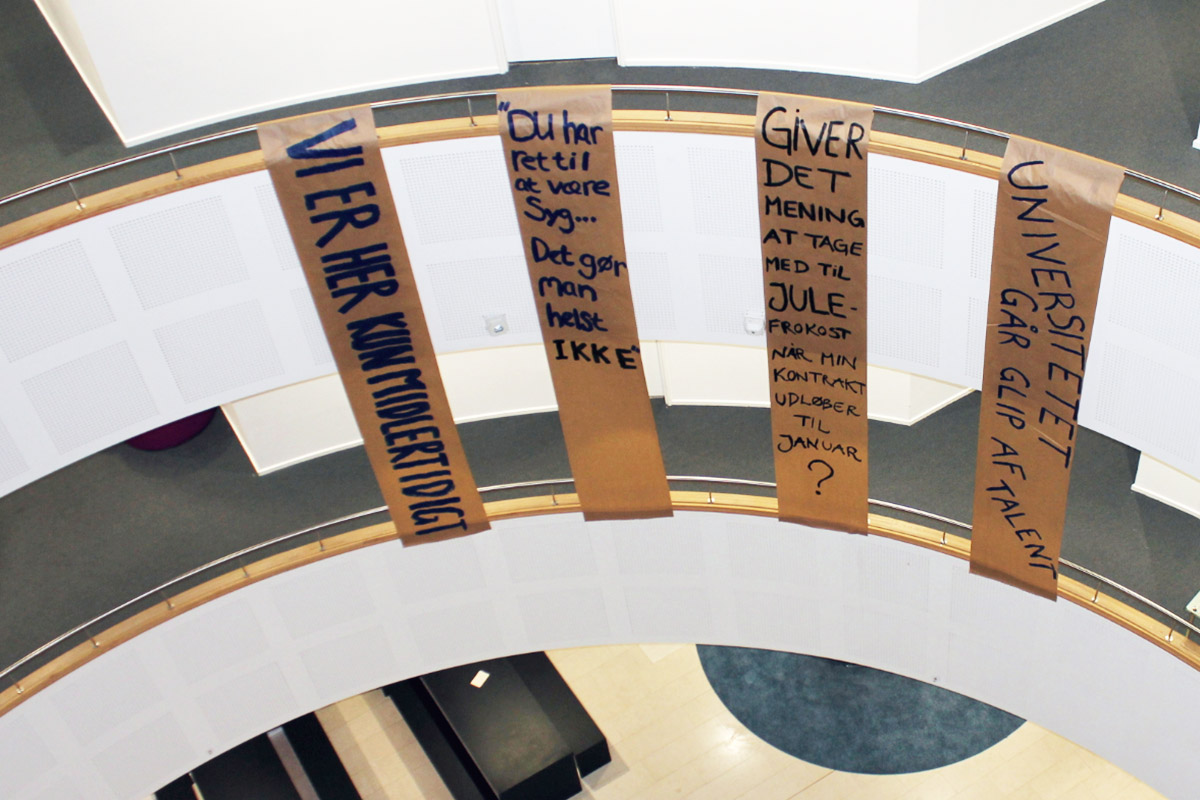 VI ER HER KUN MIDLERTIDIGT
"DU har
ret til
at være
Syg...
Det gør
man
helst
IKKE"
GIVER
DET
MENING
AT TAGE
MED TIL
JULE-
FROKOST
NÅR MIN
KONTRAKT
UDLØBER
TIL
JANUAR
?
UNIVERSITETET
GÅR GLIP AF TALENT